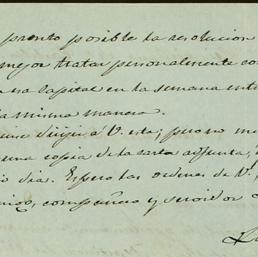 pronto posible la resolucion
mejor tratar personalmente co
na capital en la semana ent
la misma manera
dirijir á V. esta; pero no m
una copia de la carta adjunta,
dia. Espero las ordenes de V.
compañero y servidor